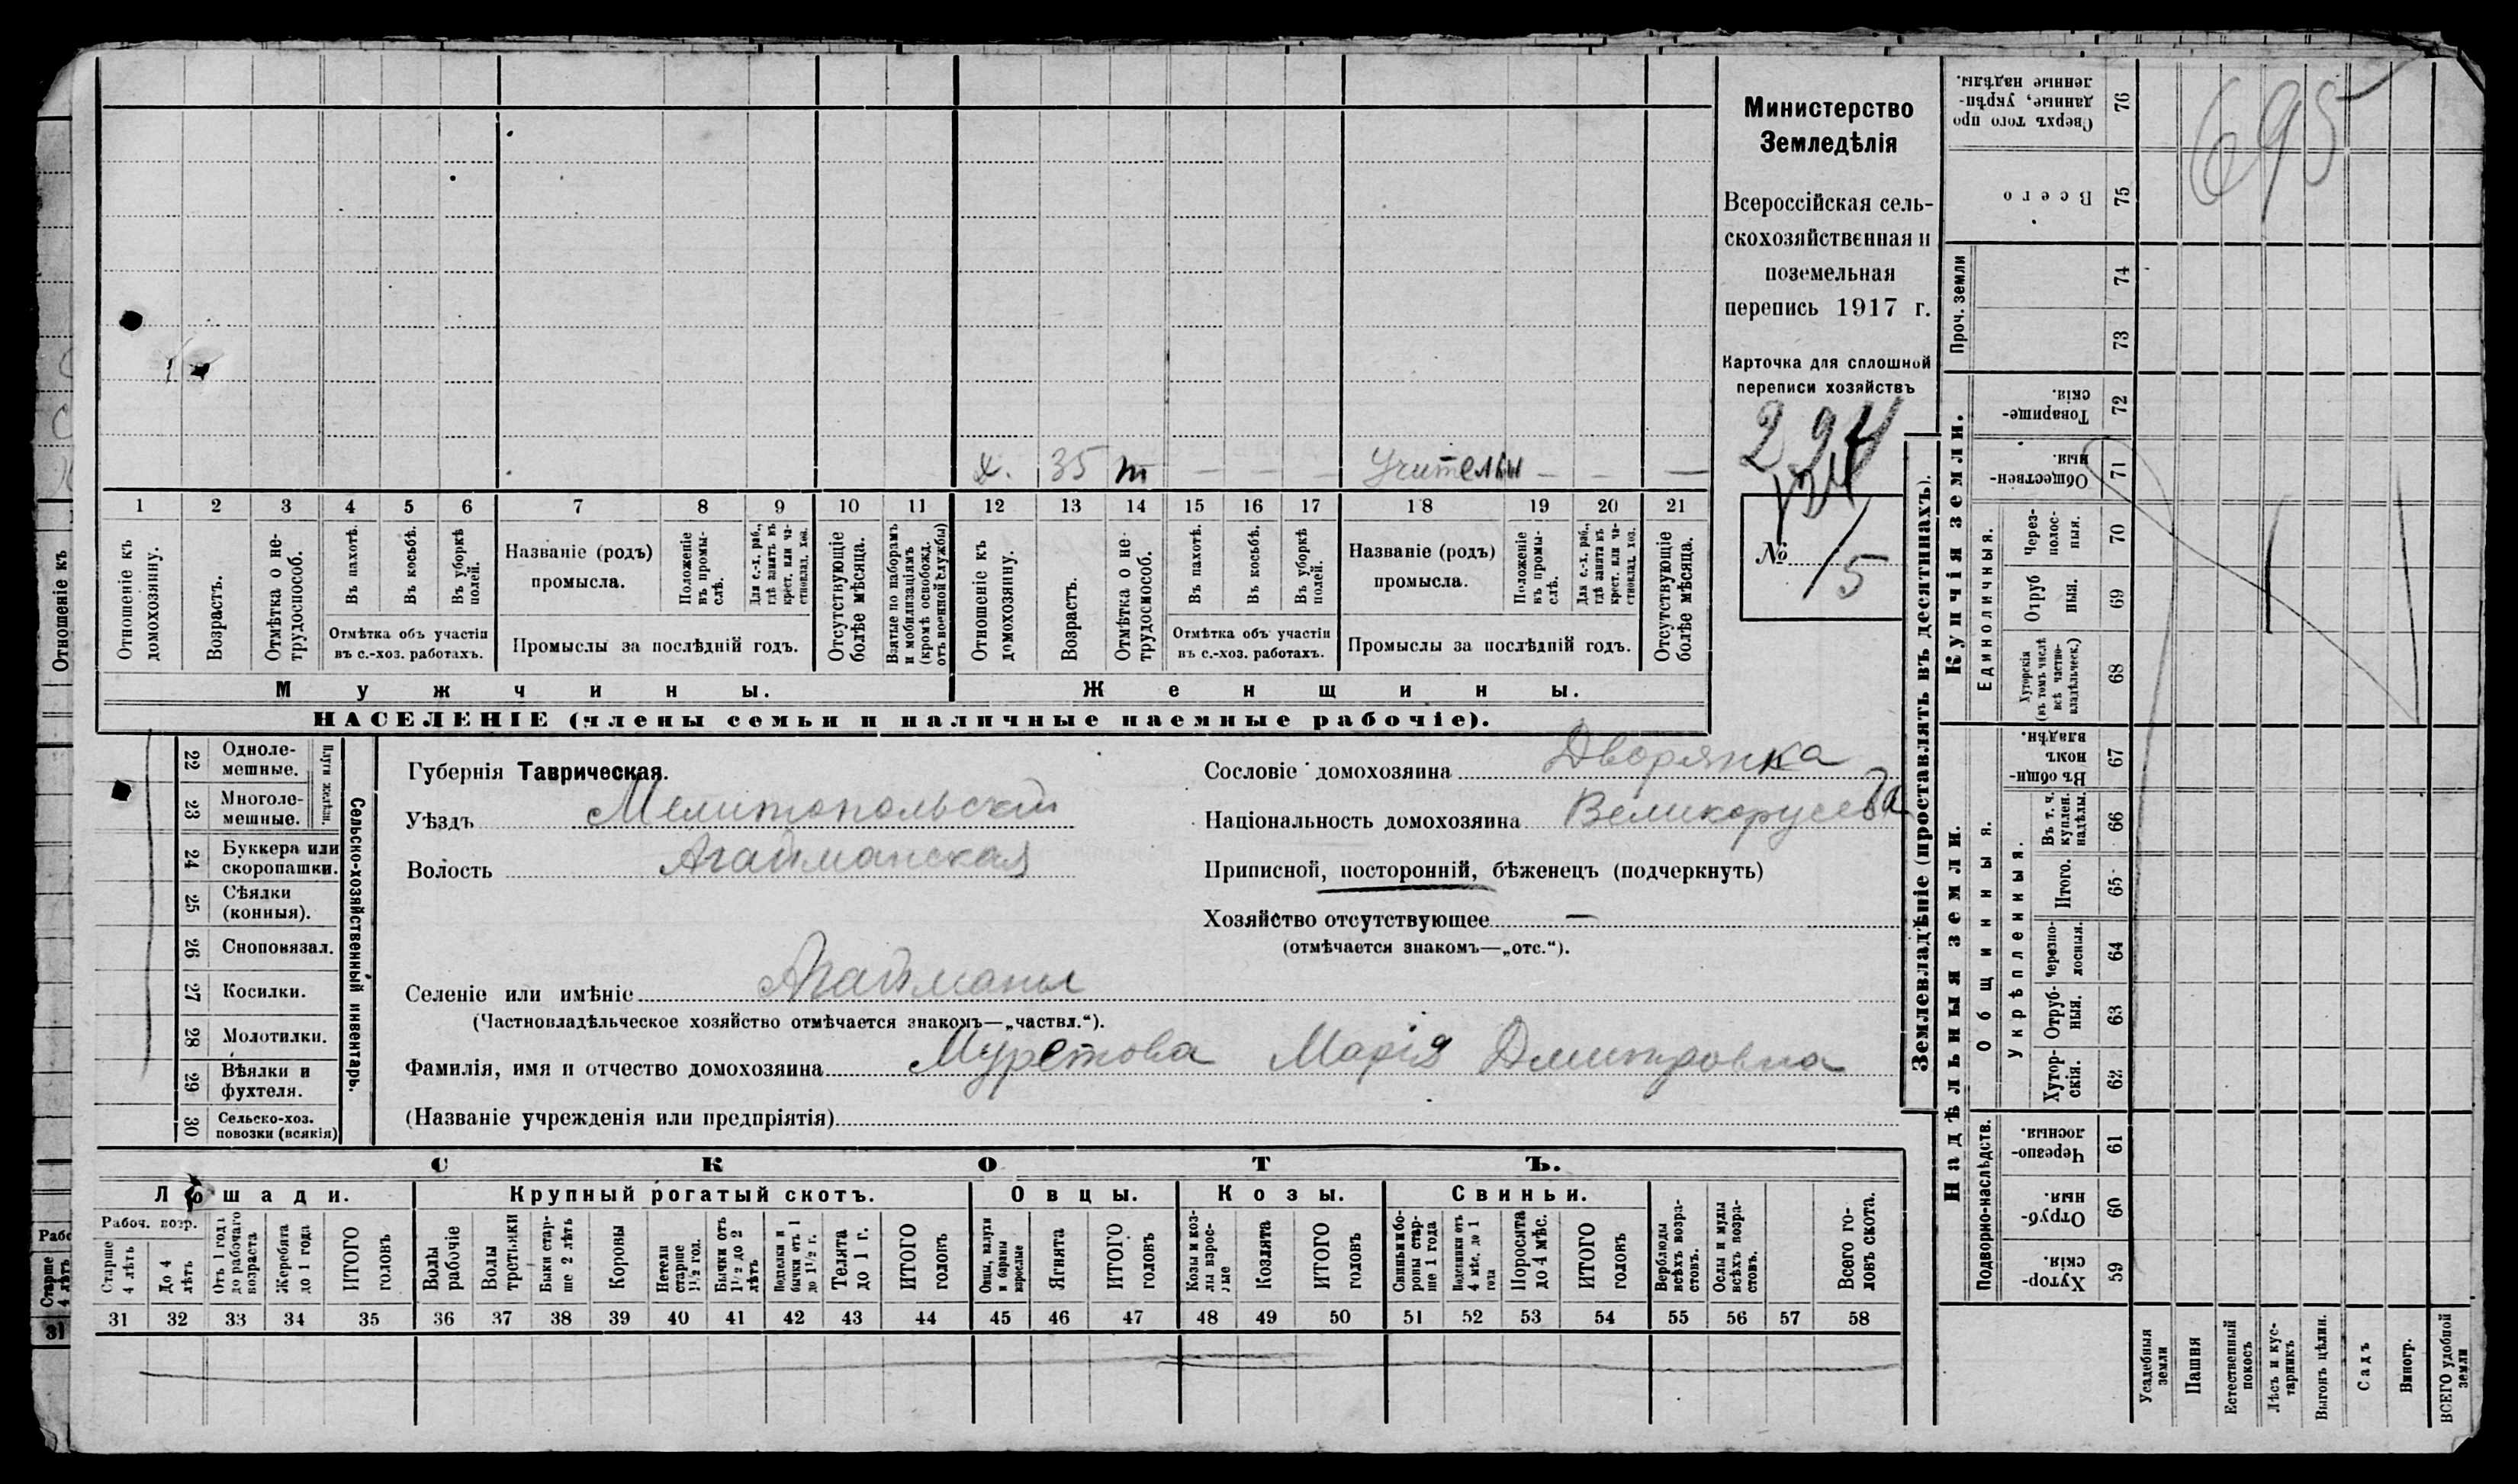 х. 35 т — — — Учительн — — —
1 2 3 4 5 6 7 8 9 10 11 12 13 14 15 16 17 18 19 20 21
Отношеніе къ домохозяину.
Возрастъ.
Отмѣтка о не-трудоспособ.
Въ пахотѣ.
Въ косьбѣ.
Въ уборкѣ полей.
Названіе (родъ) промысла.
Положеніе въ промы-слѣ.
Для с.-х. раб., гдѣ занятъ въ крест. или ча-стновлад. хоз.
Отсутствующіе болѣе мѣсяца.
Взятые по наборамъ и мобилизаціямъ (кромѣ освобожд. отъ военной службы)
Отношеніе къ домохозяину.
Возрастъ.
Отмѣтка о не-трудоспособ.
Въ пахотѣ.
Въ косьбѣ.
Въ уборкѣ полей.
Названіе (родъ) промысла.
Положеніе въ промы-слѣ.
Для с.-х. раб., гдѣ занята въ крест. или ча-стновлад. хоз.
Отсутствующіе болѣе мѣсяца.
Отмѣтка объ участіи въ с.-хоз. работахъ.
Промыслы за послѣдній годъ.
Отмѣтка объ участіи въ с.-хоз. работахъ.
Промыслы за послѣдній годъ.
Мужчины.
Женщины.
НАСЕЛЕНІЕ (члены семьи и наличные наемные рабочіе).
Министерство
Земледѣлія
Всероссійская сель-
скохозяйственная и
поземельная
перепись 1917 г.
Карточка для сплошной
переписи хозяйствъ
224
№ 15
22 Одноле-мешные.
23 Многоле-мешные.
Плуги желѣзн.
24 Буккера или скоропашки.
25 Сѣялки (конныя).
26 Сноповязал.
27 Косилки.
28 Молотилки.
29 Вѣялки и фухтеля.
30 Сельско-хоз. повозки (всякія)
Сельско-хозяйственный инвентарь.
Губернія Таврическая.
Уѣздъ Мелитопольскій
Волость Агайманская
Селеніе или имѣніе Агайманы
(Частновладѣльческое хозяйство отмѣчается знакомъ—„частвл.“).
Фамилія, имя и отчество домохозяина Муретова Марія Дмитровна
(Названіе учрежденія или предпріятія)
Сословіе домохозяина Дворянка
Національность домохозяина
Приписной, посторонній, бѣженецъ (подчеркнуть)
Хозяйство отсутствующее —
(отмѣчается знакомъ—„отс.“).
СКОТЪ.
Лошади.
Крупный рогатый скотъ.
Овцы.
Козы.
Свиньи.
Рабоч. возр.
Старше 4 лѣтъ
До 4 лѣтъ
Отъ 1 года до рабочаго возраста
Жеребята до 1 года
ИТОГО головъ
Волы рабочіе
Волы третьяки
Быки стар-ше 2 лѣтъ
Коровы
Нетели старше 1½ год.
Бычки отъ 1½ до 2 лѣтъ
Подтелки и бычки отъ 1 до 1½ г.
Телята до 1 г.
ИТОГО головъ
Овцы, валухи и бараны взрослые
Ягнята
ИТОГО головъ
Козы и коз-лы взрос-лые
Козлята
ИТОГО головъ
Свиньи бо-ровы стар-ше 1 года
Подсвинки отъ 4 мѣс. до 1 года
Поросята до 4 мѣс.
ИТОГО головъ
Верблюды всѣхъ возра-стовъ.
Ослы и мулы всѣхъ возра-стовъ.
Всего го-ловъ скота.
31 32 33 34 35 36 37 38 39 40 41 42 43 44 45 46 47 48 49 50 51 52 53 54 55 56 57 58
Землевладѣніе (проставлять въ десятинахъ).
695
Сверхъ того про-данные, укрѣп-ленные надѣлы. 76
Всего 75
Проч. земли
74
73
Купчія земли.
Товарище-скія. 72
Обществен-ныя. 71
Единоличныя.
Через-полос-ныя. 70
Отруб ныя. 69
Хуторскія (въ томъ числѣ всѣ частно-владѣльческ.) 68
Надѣльныя земли.
Общинныя.
Въ общин-номъ владѣн. 67
Укрѣпленныя.
Въ т. ч. куплен. надѣлы. 66
Итого. 65
Черезпо-лосныя. 64
Отруб-ныя. 63
Хутор-скія. 62
Подворно-наслѣдств.
Черезпо-лосныя. 61
Отруб-ныя. 60
Хутор-скія. 59
Усадебныя земли
Пашня
Естественный покосъ
Лѣсъ и кус-тарникъ
Выгонъ цѣлин.
Садъ
Виногр.
ВСЕГО удобной земли
Отношеніе къ
Рабо
Старше 4 лѣтъ
31